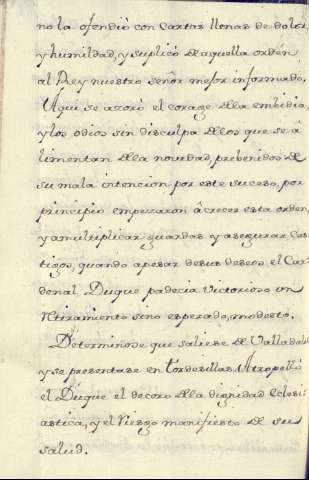 no la ofendió con cartas llenas de dolor
y humildad, y suplicó de aquella orden
al Rey nuestro señor mejor informado.
Aqui se azoró el corage de la embidia,
y los odios sin disculpa de los que se â
limentan de la novedad, prebenidos de
su mala intencion por este suceso, por
principio empezaron â crecer esta orden,
y a multiplicar guardas y asegurar cas
tigos, quando apesar de sus deseos el Car
denal Duque padecia victorioso un
retiramiento sino esperado, modesto.
Determinose que saliese de Valladolid
y se presentase en Tordesillas. Atropelló
el Duque el decoro de la dignidad Eclesi
astica, y el riesgo manifiesto de su
salud.